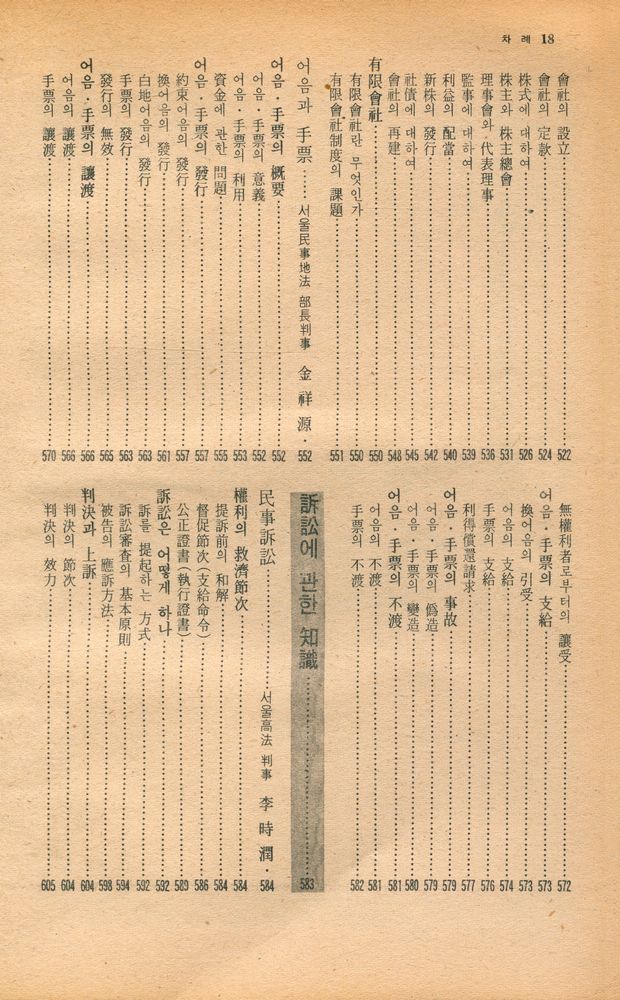 차 례 18
會社의 設立 522
會社의 定款 524
株式에 대하여 526
株主와 株主總會 531
理事會와 代表理事 536
監事에 대하여 539
利益의 配當 540
新株의 發行 542
社債에 대하여 545
會社의 再建 548
有限會社 550
有限會社란 무엇인가 550
有限會社制度의 課題 551
어음과 手票 서울民事地法 部長判事 金祥源 552
어음·手票의 概要 552
어음·手票의 意義 552
어음·手票의 利用 553
資金에 관한 問題 555
어음·手票의 發行 557
約束어음의 發行 557
換어음의 發行 561
白地어음의 發行 563
手票의 發行 563
發行의 無效 565
어음·手票의 讓渡 566
어음의 讓渡 566
手票의 讓渡 570
無權利者로부터의 讓受 572
어음·手票의 支給 573
換어음의 引受 573
어음의 支給 574
手票의 支給 576
利得償還請求 577
어음·手票의 事故 579
어음·手票의 僞造 579
어음·手票의 變造 580
어음·手票의 不渡 581
어음의 不渡 581
手票의 不渡 582
訴訟에 관한 知識 583
民事訴訟 서울高法 判事 李時潤 584
權利의 救濟節次 584
提訴前의 和解 584
督促節次(支給命令) 586
公正證書(執行證書) 589
訴訟은 어떻게 하나 592
訴를 提起하는 方式 592
訴訟審査의 基本原則 594
被告의 應訴方法 598
判決과 上訴 604
判決의 節次 604
判決의 효力 605